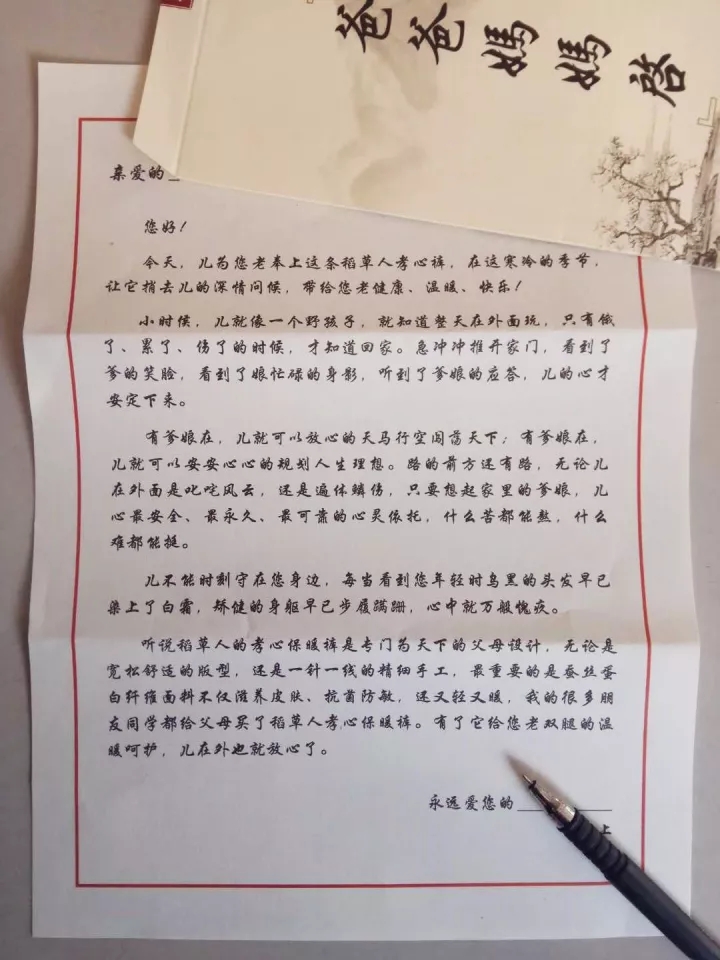 爸爸媽媽啓
亲爱的
您好！
今天，儿为您老奉上这条稻草人孝心裤，在这寒冷的季节，
让它捎去儿的深情问候，带给您老健康、温暖、快乐！
小时候，儿就像一个野孩子，就知道整天在外面玩，只有饿
了、累了、伤了的时候，才知道回家。急冲冲推开家门，看到了
爹的笑脸，看到了娘忙碌的身影，听到了爹娘的应答，儿的心才
安定下来。
有爹娘在，儿就可以放心的天马行空闯荡天下；有爹娘在，
儿就可以安安心心的规划人生理想。路的前方还有路，无论儿
在外面是叱咤风云，还是遍体鳞伤，只要想起家里的爹娘，儿
心最安全、最永久、最可靠的心灵依托，什么苦都能熬，什么
难都能挺。
儿不能时刻守在您身边，每当看到您年轻时乌黑的头发早已
染上了白霜，矫健的身躯早已步履蹒跚，心中就万般愧疚。
听说稻草人的孝心保暖裤是专门为天下的父母设计，无论是
宽松舒适的版型，还是一针一线的精细手工，最重要的是蚕丝蛋
白纤维面料不仅滋养皮肤、抗菌防敏，还又轻又暖，我的很多朋
友同学都给父母买了稻草人孝心保暖裤。有了它给您老双腿的温
暖呵护，儿在外也就放心了。
永远爱您的
上